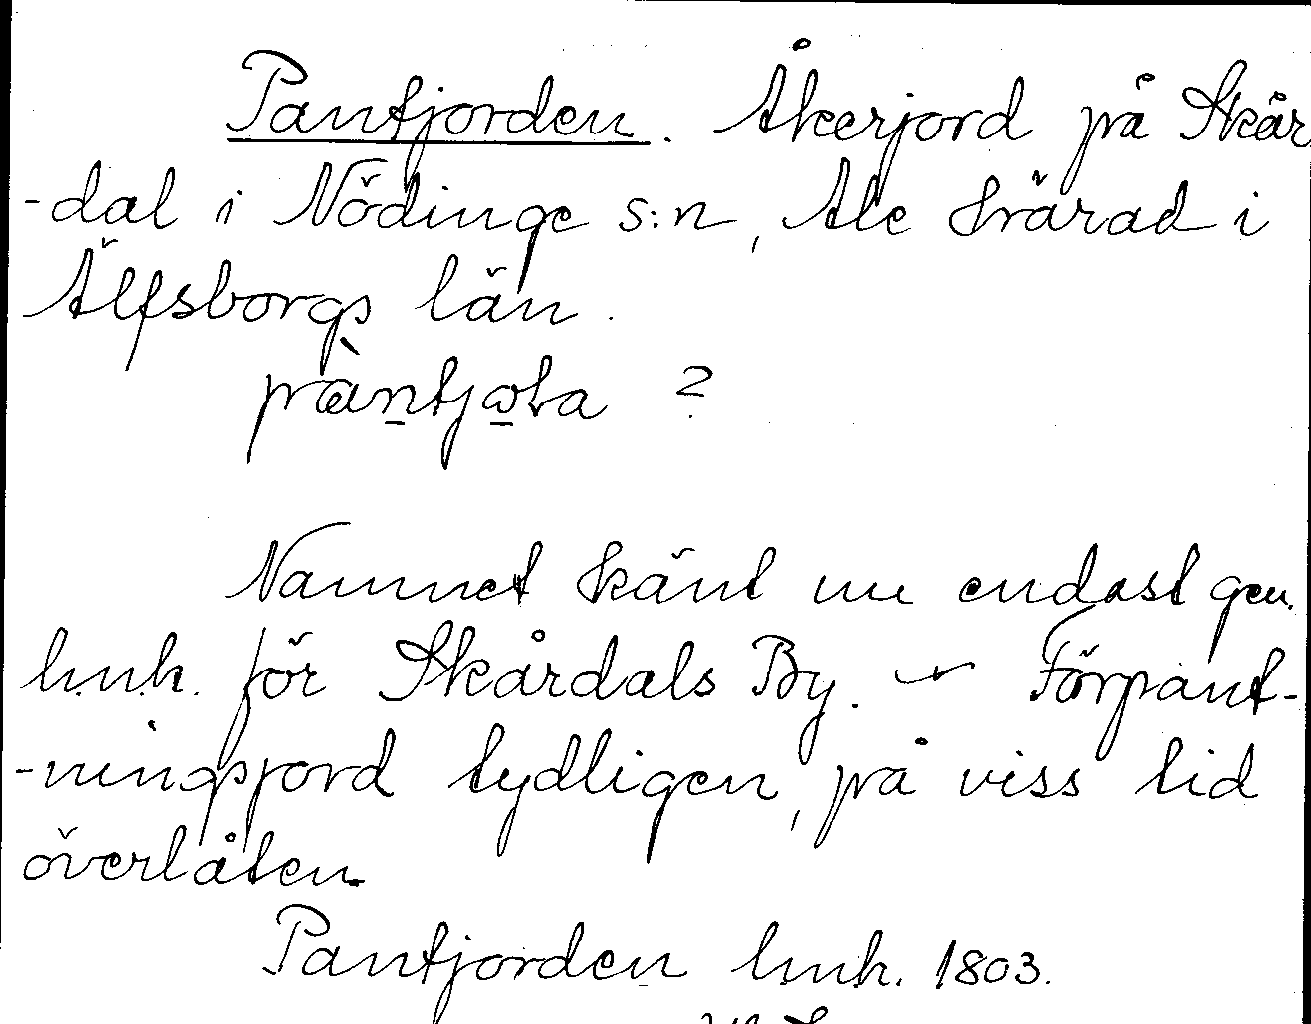 Pantjorden. Åkerjord på Skår
-dal i Nödinge s:n, Ale härad i
Älfsborgs län.
pàntjola ?
Namnet känt nu endast gen.
lmh. för Skårdals By. – Förpant-
-ningsjord tydligen, på viss tid
överlåten.
Pantjorden lmh. 1803.